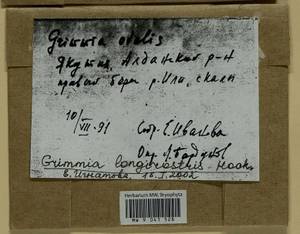 Grimmia ovalis
Якутия, Алданский р-н
правый берег р. , скалы
10/VII-91 Собр. Е. Иванова
Опр.
Grimmia longirostris Hook.
Е. Игнатова, I.2002
Herbarium MW, Bryophyta